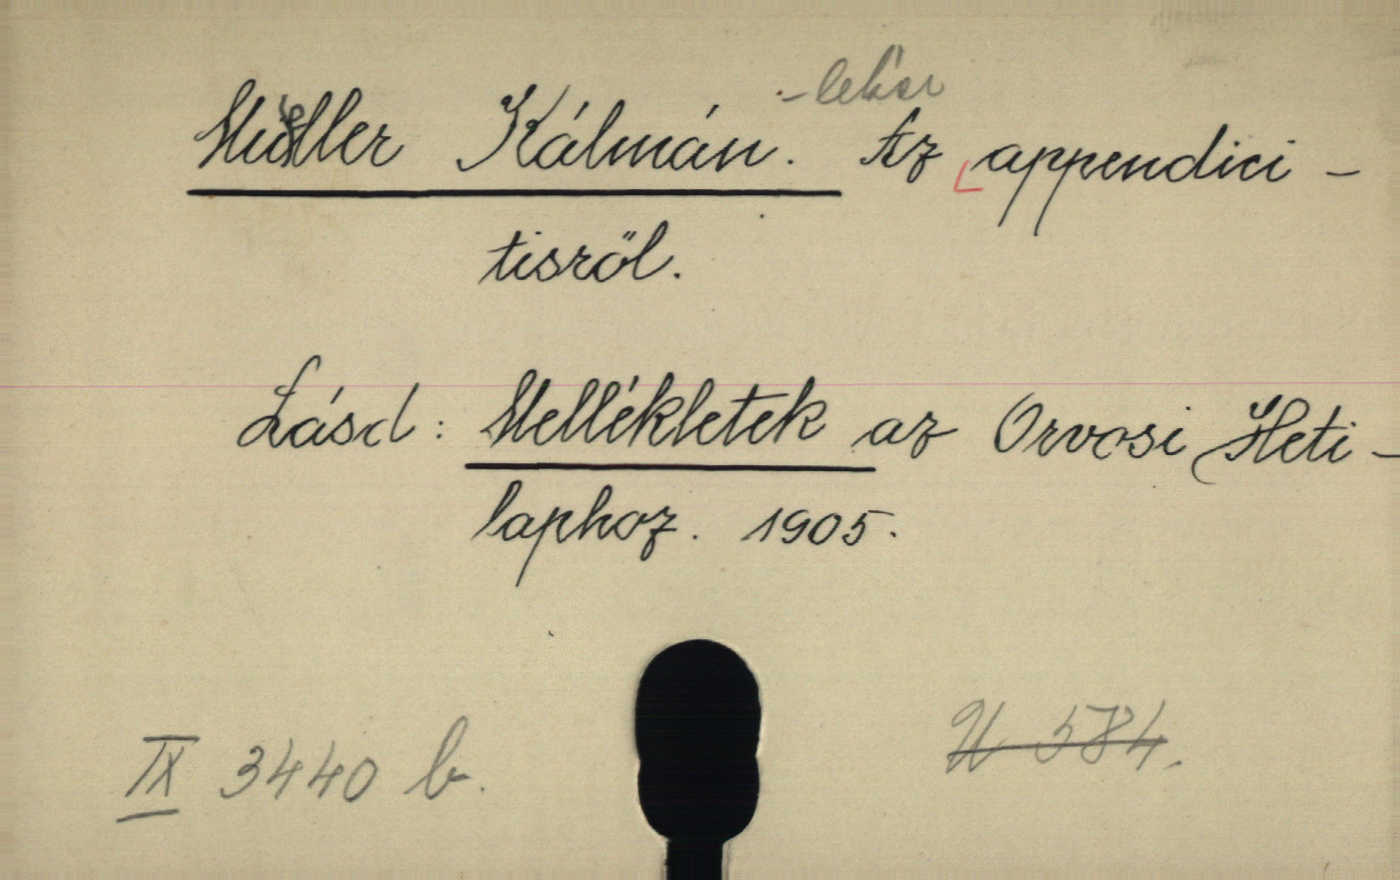 - lekár
Müller Kálmán. Az appendici -
tisről.
Lásd: Mellékletek az Orvosi Heti -
laphoz. 1905.
IX 3440 b.